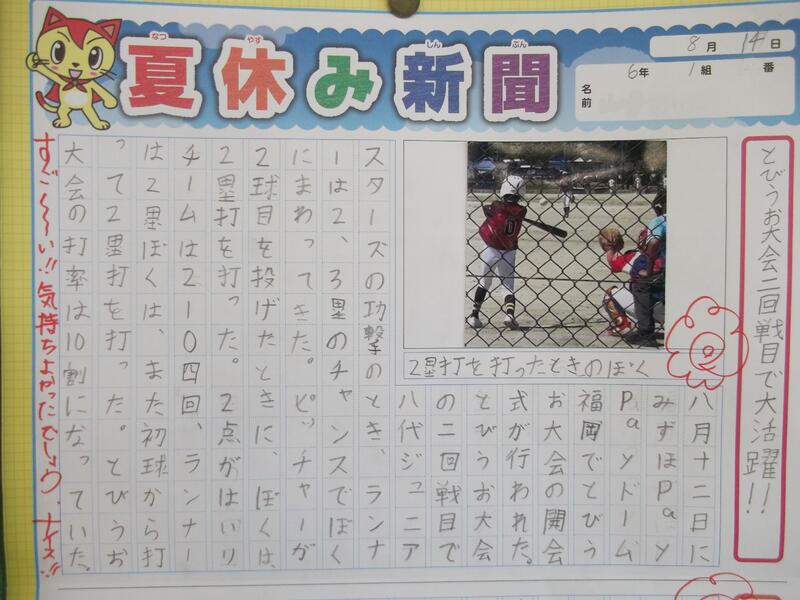 なつ やす しん ぶん
夏休み新聞
8月14日
6年1組 番
名前
とびうお大会二回戦目で大活躍!!
2塁打を打ったときのぼく
八月十二日に
みずほPay
Payドーム
福岡でとびう
お大会の開会
式が行われた。
とびうお大会
の二回戦目で
八代ジュニア
スターズの功撃のとき、ランナ
ーは2、3塁のチャンスでぼく
にまわってきた。ピッチャーが
2球目を投げたときに、ぼくは、
2塁打を打った。2点がはいり
チームは210四回、ランナー
は2塁ぼくは、また初球から打
って2塁打を打った。とびうお
大会の打率は10割になっていた。
すご〜〜い!!気持ちよかったでしょう、ナイス!!